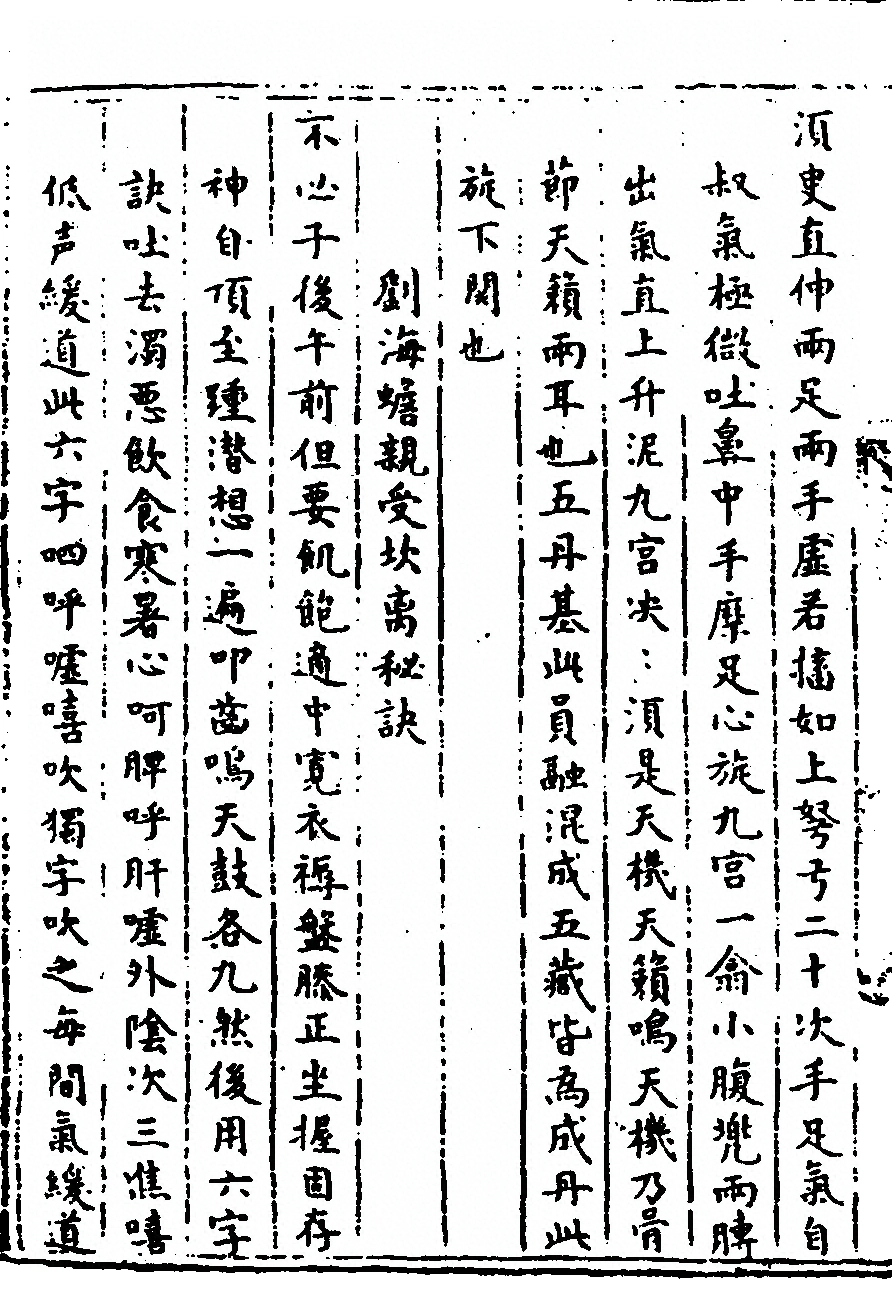 須臾直伸兩足兩手虛若搐如上弩弓二十次手足氣自
叔氣極微吐鼻中手縻足心旋九宫一翕小腹兠兩脾
出氣直上升泥九宫决〻須是天機天籟鳴天機乃骨
節天籟兩耳也五丹基此員融混成五藏皆為成丹此
旋下関也
劉海蟾親受坎离秘訣
不必子後午前但要飢飽適中寛衣褥盤膝正坐握固存
神自頂至踵潜想一遍叩齒鳴天鼓各九然後用六字
訣吐去濁悪飲食寒署心呵脾呼肝嘘外陰次三焦嘻
低声緩道此六字呬呼嘘嘻吹獨字吹之每間氣緩道